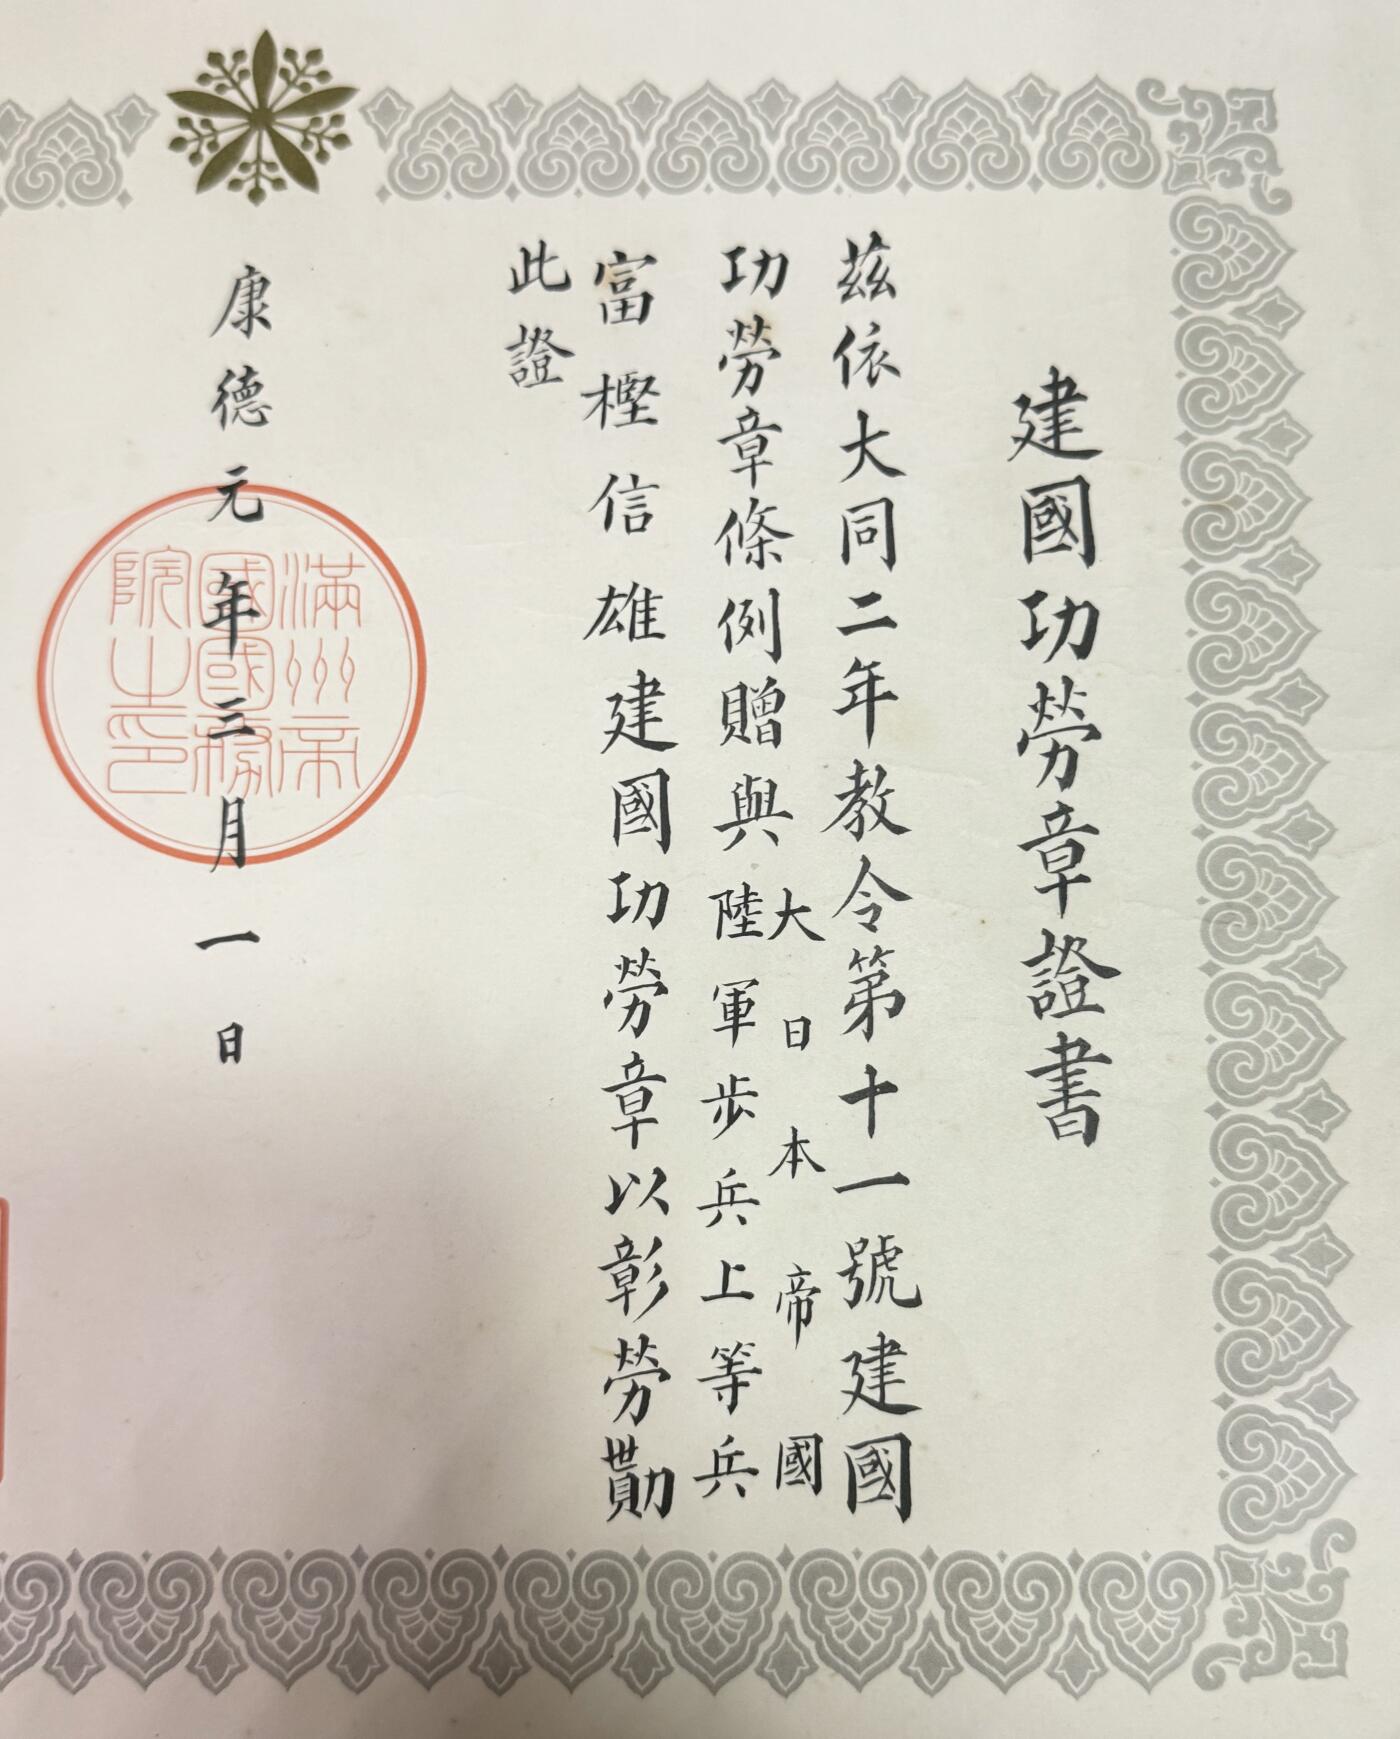 建國功勞章證書
茲依大同二年教令第十一號建國
功勞章條例贈與
大日本帝國
陸軍步兵上等兵
富樫信雄建國功勞章以彰勞勩
此證
康德元年三月一日
滿州帝
國國務
院之印